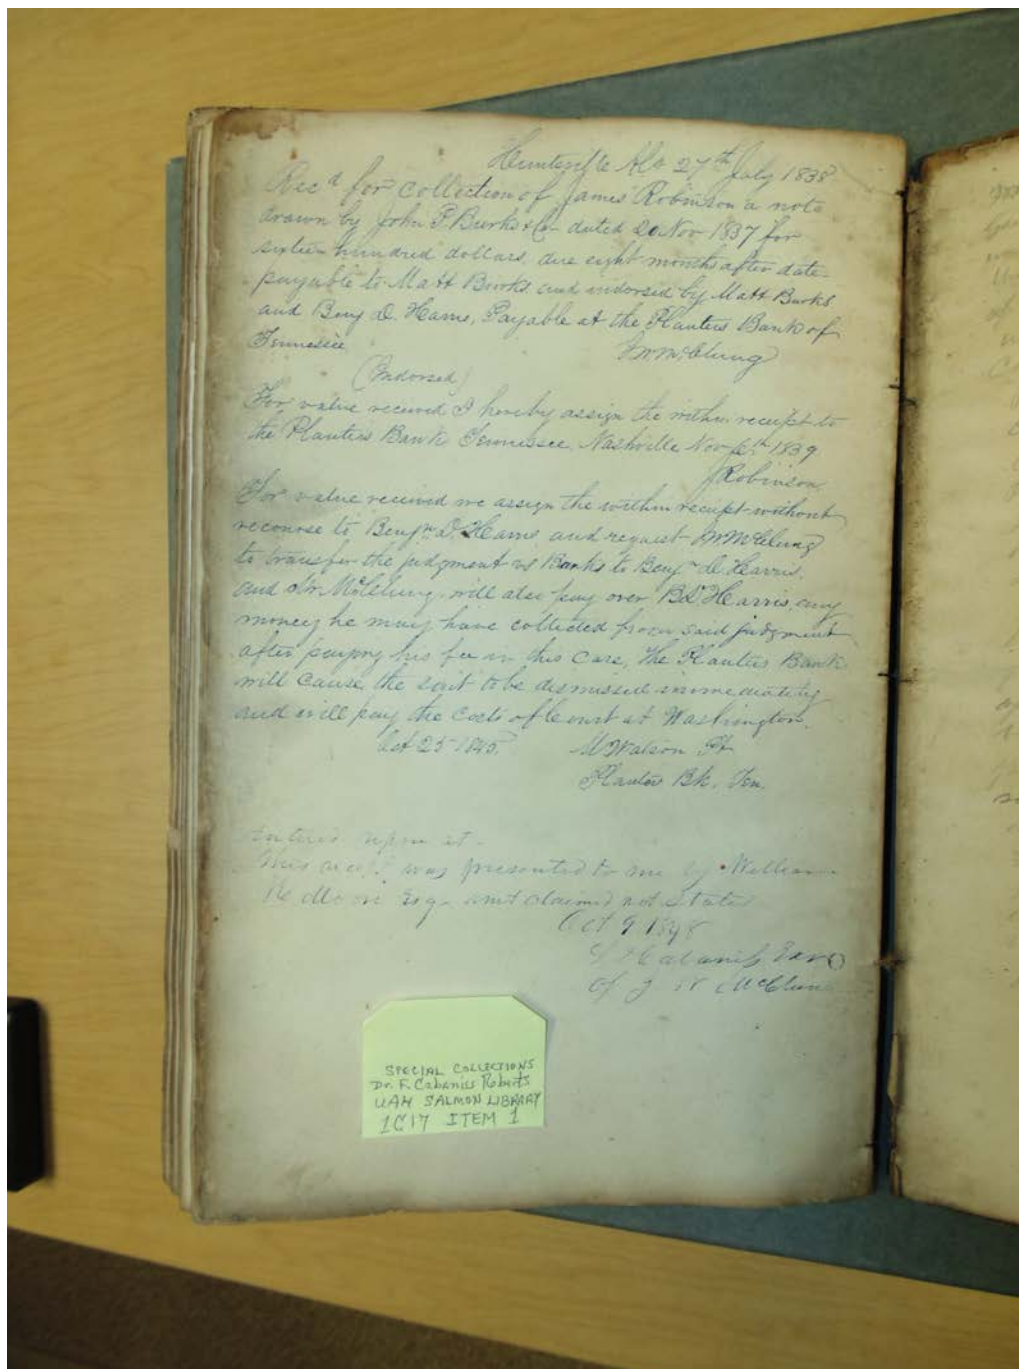 Huntsville Ala 27th July 1838
Recd for collection of James Robinson a note
drawn by John P. Burks & Co dated 20 Nov 1837 for
sixteen hundred dollars due eight months after date
payable to Matt Burks and indorsed by Matt Burks
and Benj D. Harris, Payable at the Planters Bank of
Tennessee
McClung
(Indorsed)
For value received I hereby assign the within receipt to
the Planters Bank Tennessee. Nashville Nov 6th 1839
J Robinson
For value received we assign the within receipt without
recourse to Benjn D. Harris and request McClung
to transfer the judgment vs Burks to Benjn D Harris.
and Mr. McClung will also pay over B D Harris any
money he may have collected from said judgment
after paying his fee in this case, The Planters Bank
will cause the suit to be dismissed immediately
and will pay the costs of Court at Washington.
Oct 25 1845. M Watson Pt
Planters Bk. Ten.
This was presented to me by William
Esq amt claimed not Stated
Oct 9 1848
Cabaniss Exr
of J W McClung
SPECIAL COLLECTIONS
Dr. F. Cabaniss Roberts
UAH SALMON LIBRARY
1C17 ITEM 1